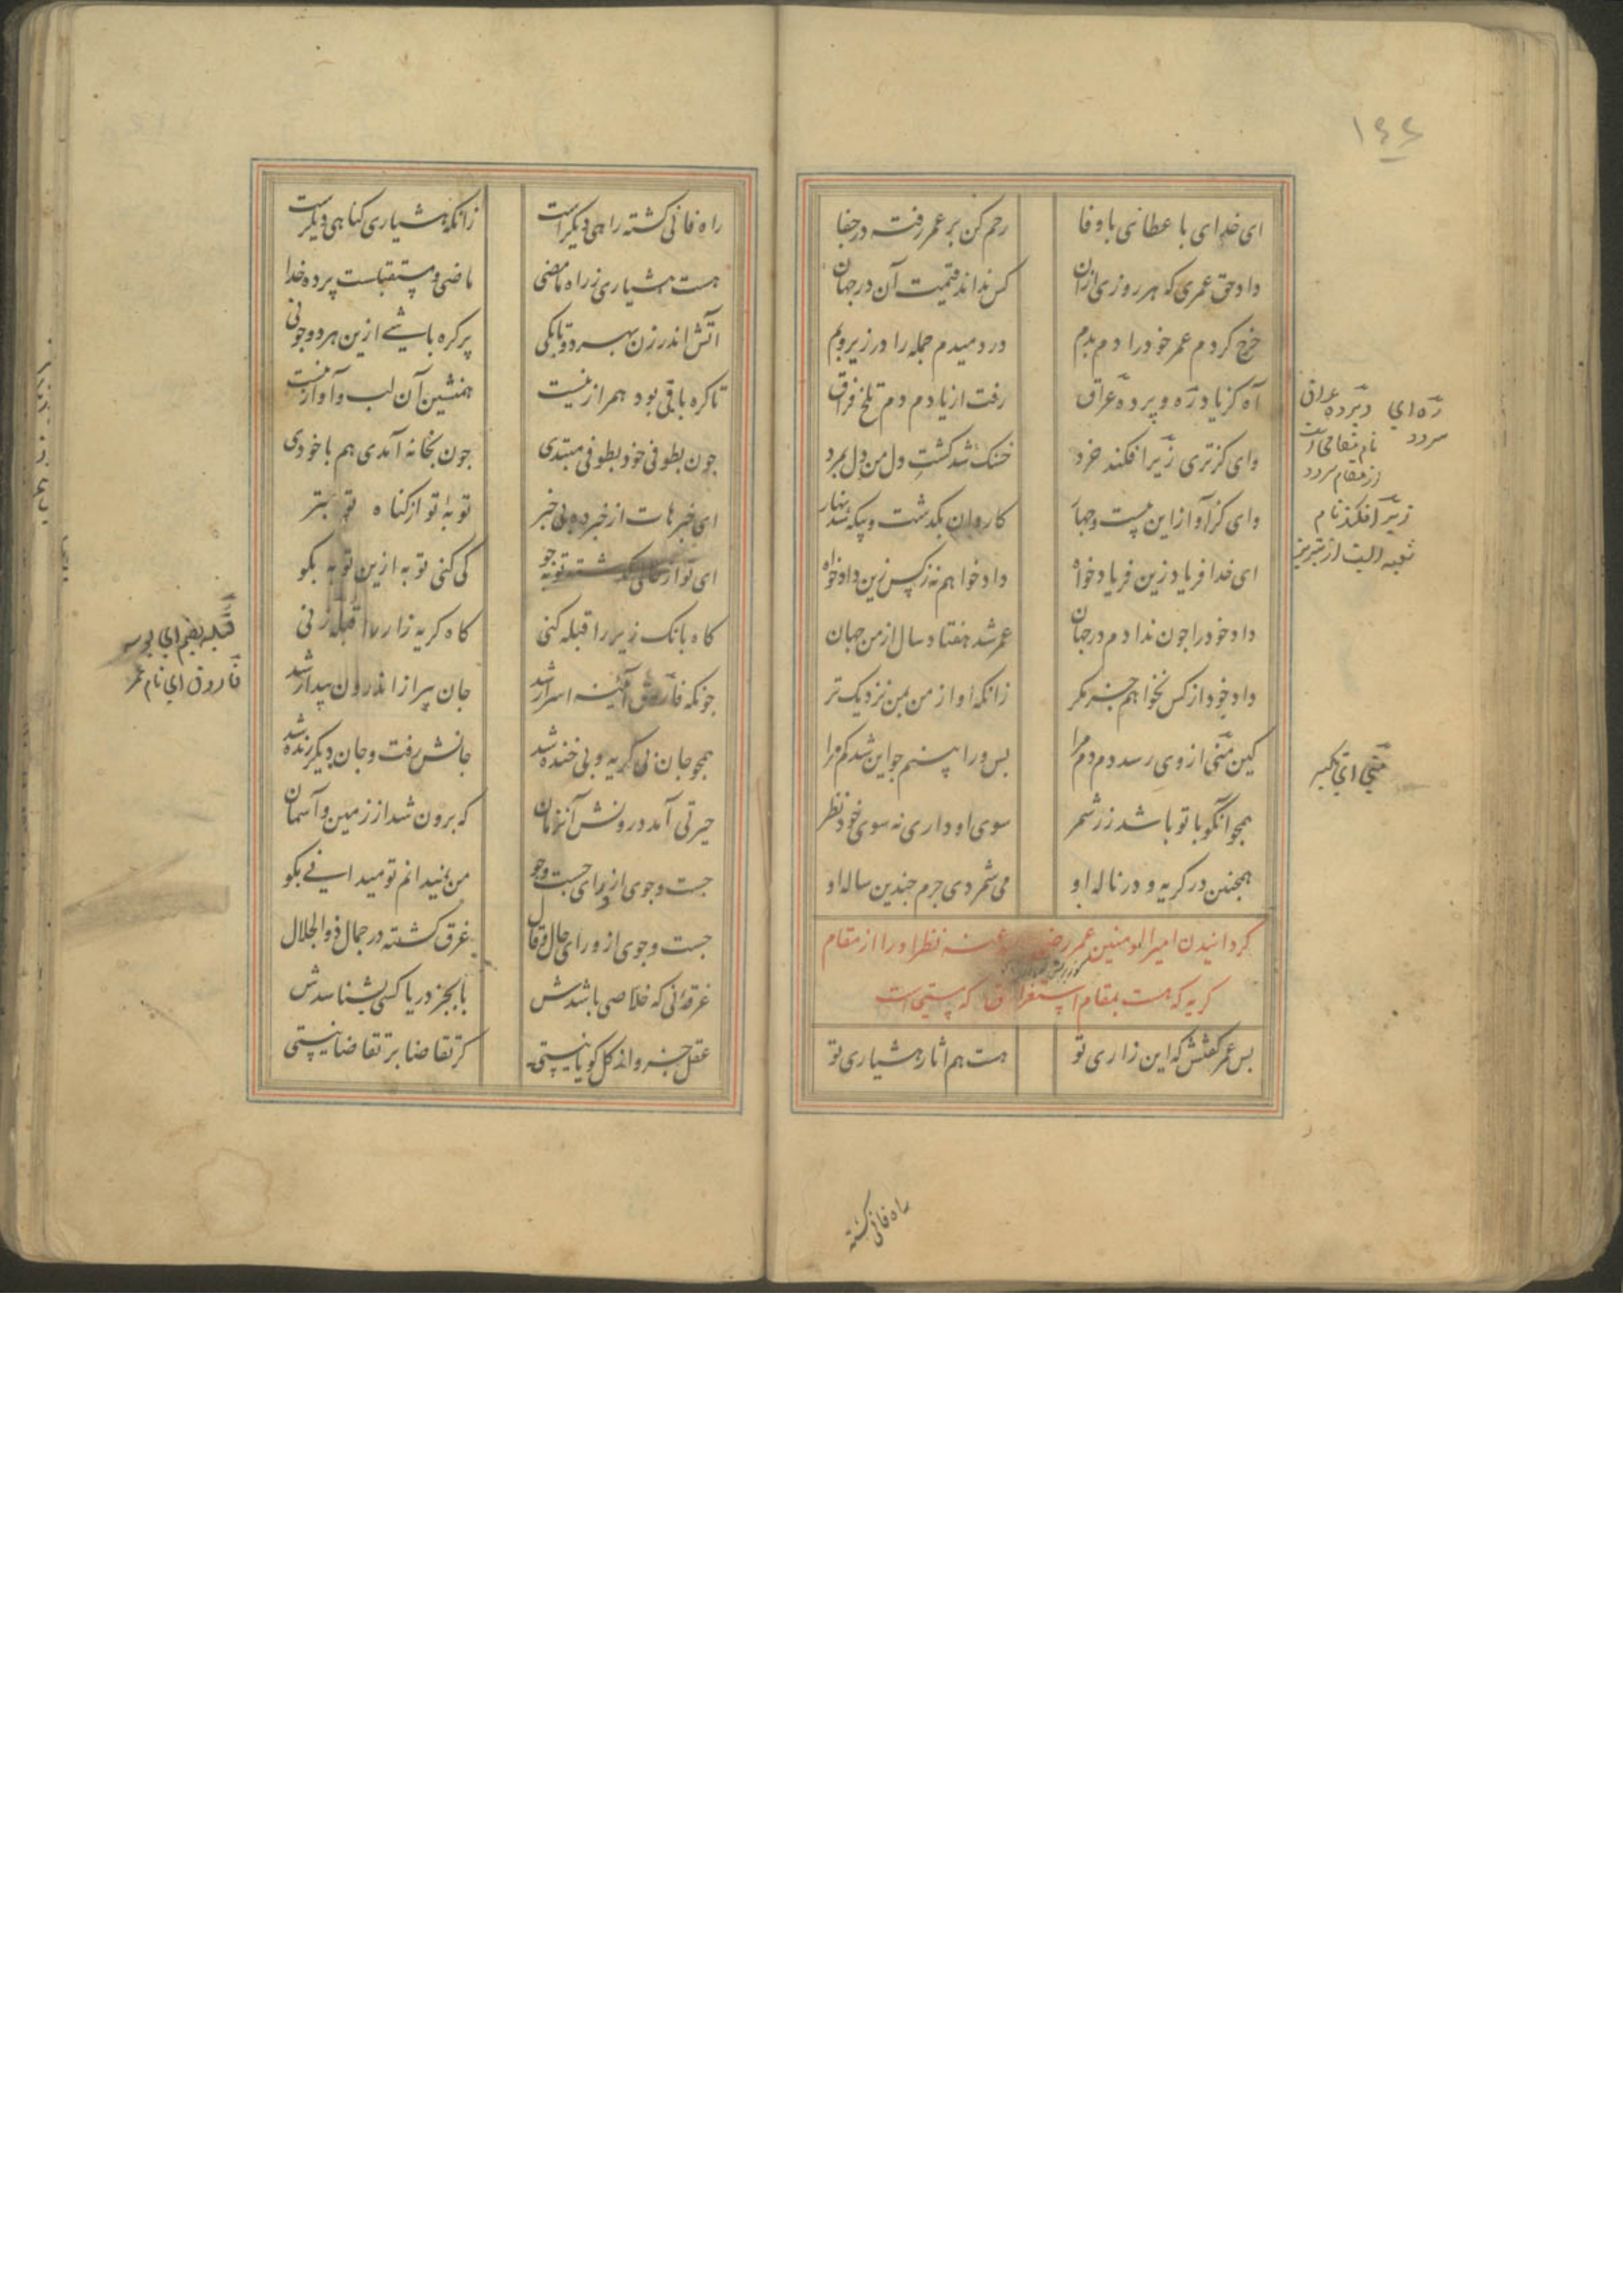 ۱۴۴
ای خدای با عطای با وفا رحم کن بر عمر رفته در جفا
داد حق عمری که هر روزی ازان کس نداند قیمت آن در جهان
خرج کردم عمر خود را دم بدم در دمیدم جمله را در زیر و بم
آه کز یاد ره و پرده عراق رفت از یادم دم تلخ فراق
وای کز تری زیرافکند خرد خشک شد کشت دل من دل بمرد
وای کز آواز این بیست وجهار کاروان بکذشت وبیکه شد نهار
ای خدا فریاد زین فریاد خواه داد خواهم نه زکس زین داد خواه
داد خود را جون ندادم در جهان عمر شد هفتاد سال از من جهان
داد خود از کس نخواهم جز مکر زانکه او از من بمن نزدیک تر
کین منی از وی رسد دم دم مرا بس ورا بینم جو این شد کم مرا
همجو آنکو با تو باشد زر شمر سوی او داری نه سوی خود نظر
همجنین در کریه و در ناله او می شمردی جرم جندین ساله او
کردانیدن امیر المومنین عمر رضی عنه نظر او را از مقام
کریه که هست بمقام استغراق که نیستی است
بس عمر کفتش که این زاری تو هست هم اثار هشیاری تو
ره ای سرود
وپرده عراق نام مقامی است
از مقام سرود
زیرافکند نام
شعبه ایست از
منی ای تکبر
راه فانی کشته
راه فانی کشته راهی دیکر است زانکه هشیاری کناهی دیکر است
هست هشیاری ز راه ما مضی ماضی و مستقبلت پرده خدا
آتش اندر زن بهر دو تا بکی پر کره باشی ازین هر دو جو نی
تا کره با نی بود همراز نیست همنشین آن لب و آواز نیست
جون بطوفی خود بطوفی مبتدی جون بخانه آمدی هم با خودی
ای خبرهات از خبرده بی خبر توبه تو از کناه تو بتر
ای تو از حال کذشته توبه جو کی کنی توبه ازین توبه بکو
کاه بانک زیر را قبله کنی کاه کریه زار را قبله زنی
جونکه فاروق آینه اسرار شد جان پیر از اندرون بیدار شد
همجو جان بی کریه و بی خنده شد جانش رفت و جان دیکر زنده شد
حیرتی آمد درونش آنزمان که برون شد از زمین و آسمان
جست وجوی از ورای جست وجو من نمیدانم تو میدانی بکو
جست وجوی از ورای حال وقال غرق کشته در جمال ذو الجلال
غرقه نی که خلاصی باشدش یا بجز دریا کسی بشناسدش
عقل جزو از کل کویا نیستی کر تقاضا بر تقاضا نیستی
قبله بضم ای بوسه
فاروق ای نام عمر